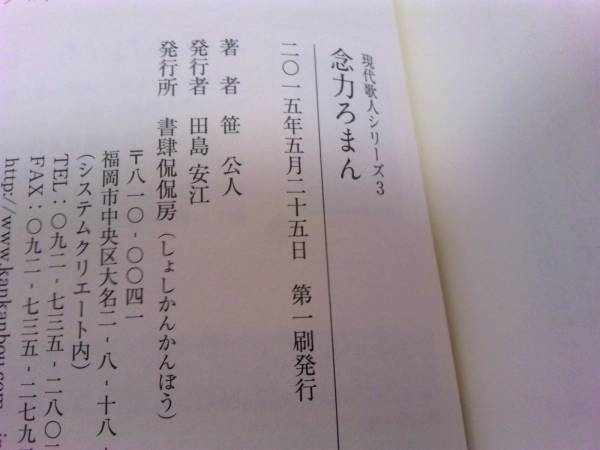 現代歌人シリーズ3
念力ろまん
二〇一五年五月二十五日　第一刷発行
著　者　笹　公人
発行者　田島 安江
発行所　書肆侃侃房（しょしかんかんぼう）
〒八一〇-〇〇四一
福岡市中央区大名二-八-十八-
（システムクリエート内）
TEL：〇九二-七三五-二八〇
FAX：〇九二-七三五-二七九
http://www.kankanbou.com